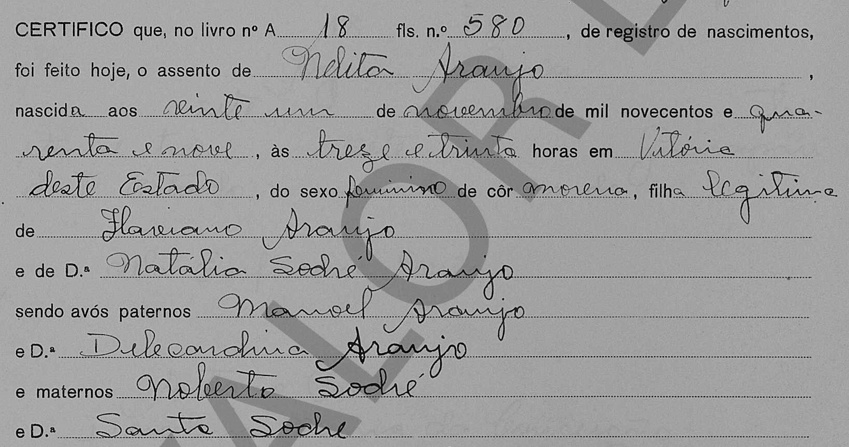 CERTIFICO que, no livro nº A 18 fls. n.º 580, de registro de nascimentos,
foi feito hoje, o assento de Nelita Araujo,
nascida aos vinte um de novembro de mil novecentos e qua-
renta e nove, às treze e trinta horas em Vitória
deste Estado, do sexo feminino de côr morena, filha legitima
de Flaviano Araujo
e de D.ª Natália Sodré Araujo
sendo avós paternos Manoel Araujo
e D.ª Araujo
e maternos Roberto Sodré
e D.ª Santa Sodré
VALOR